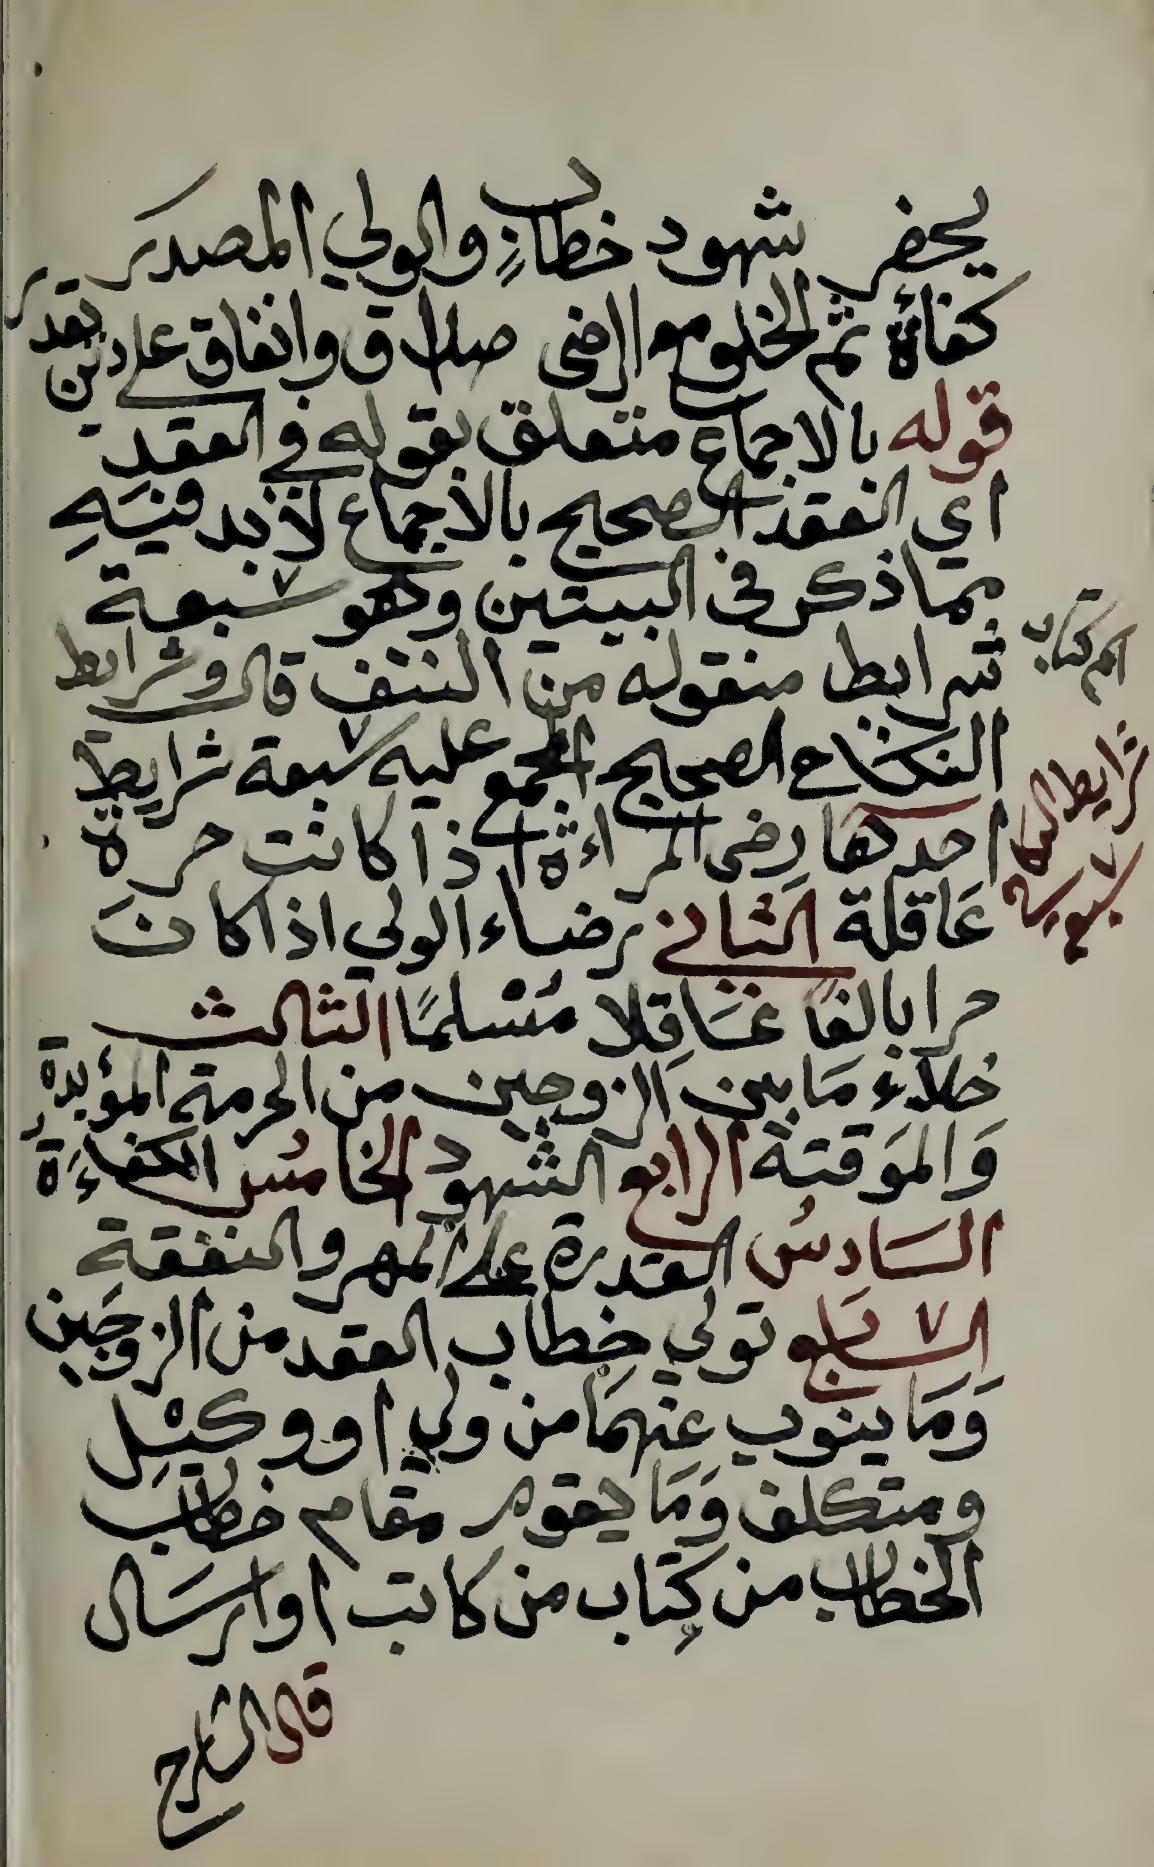 يحضر شهود خطاب والولي المصدر
كفأة ثم الخلو مع الرضى صداق وانفاق على دين تقدر
قوله بالاجماع متعلق بقوله في العقد
اي العقد الصحيح بالأجماع لا بد فيه
مما ذكر في البيتين وهو سبعة ٧
شرايط منقوله من النتف قال وشرايط
النكاح الصحيح المجمع عليه سبعة ٧ شرايط
احدها رضى المراءة اذا كانت حرة
عاقلة الثاني رضاء الولي اذا كان
حرا بالغا عاقلا مسلما الثالث
خلاء ما بين الزوجين من الحرمة المؤبدة
والموقتة الرابع الشهود الخامس الكفاءة
السادس القدرة على المهر والنفقة
السابع ٧ تولي خطاب العقد من الزوجين
وما ينوب عنهما من ولي او وكيل
ومتكلف وما يقوم مقام خطاب
الخطاب من كتاب من كاتب او ارسال
قال الشارح
اسم كتاب
شرايط النكاح
سبعة ٧